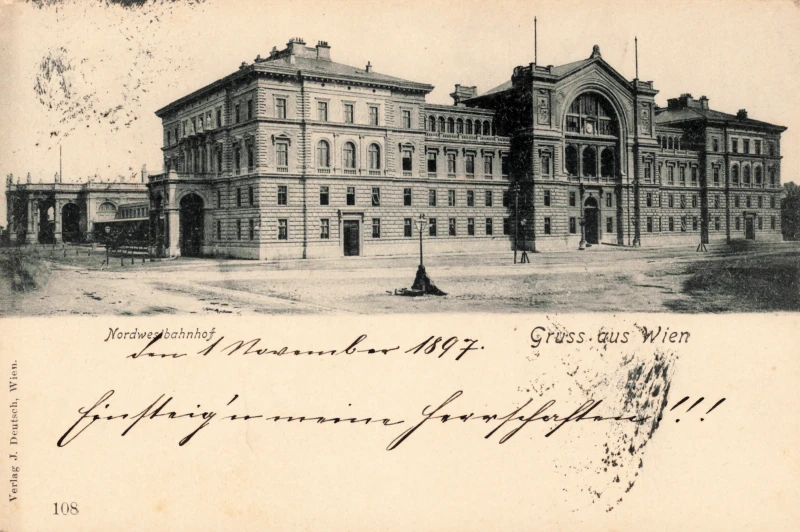 Nordwestbahnhof
Gruss aus Wien
den 1 November 1897.
Einsteig'n meine Herrschaften !!!
Verlag J. Deutsch, Wien.
108